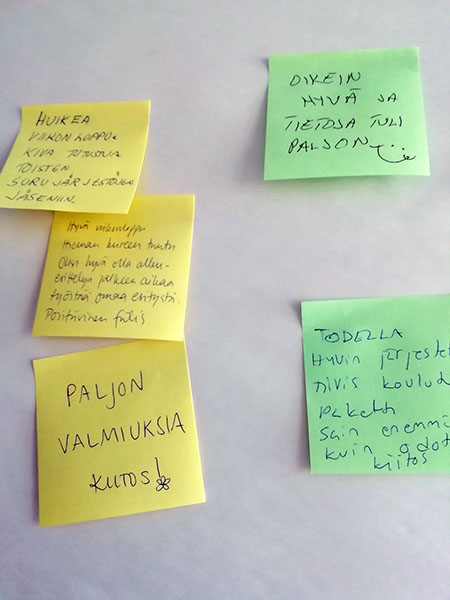 HUIKEA
VIIKONLOPPU.
KIVA TUTUSTUA
TOISTEN
SURUJÄRJESTÖJEN
JÄSENIIN.
Hyvä viikonloppu
Hieman kiireen tuntu
Olisi hyvä olla
enemmän aikaa
työstää omaa esitystä.
Positiivinen fiilis.
PALJON
VALMIUKSIA
KIITOS!
OIKEIN
HYVÄ JA
TIETOJA TULI
PALJON
TODELLA
Hyvin järjeste
tiivis koulu
paketti
Sain enemmä
kuin odot
kiitos